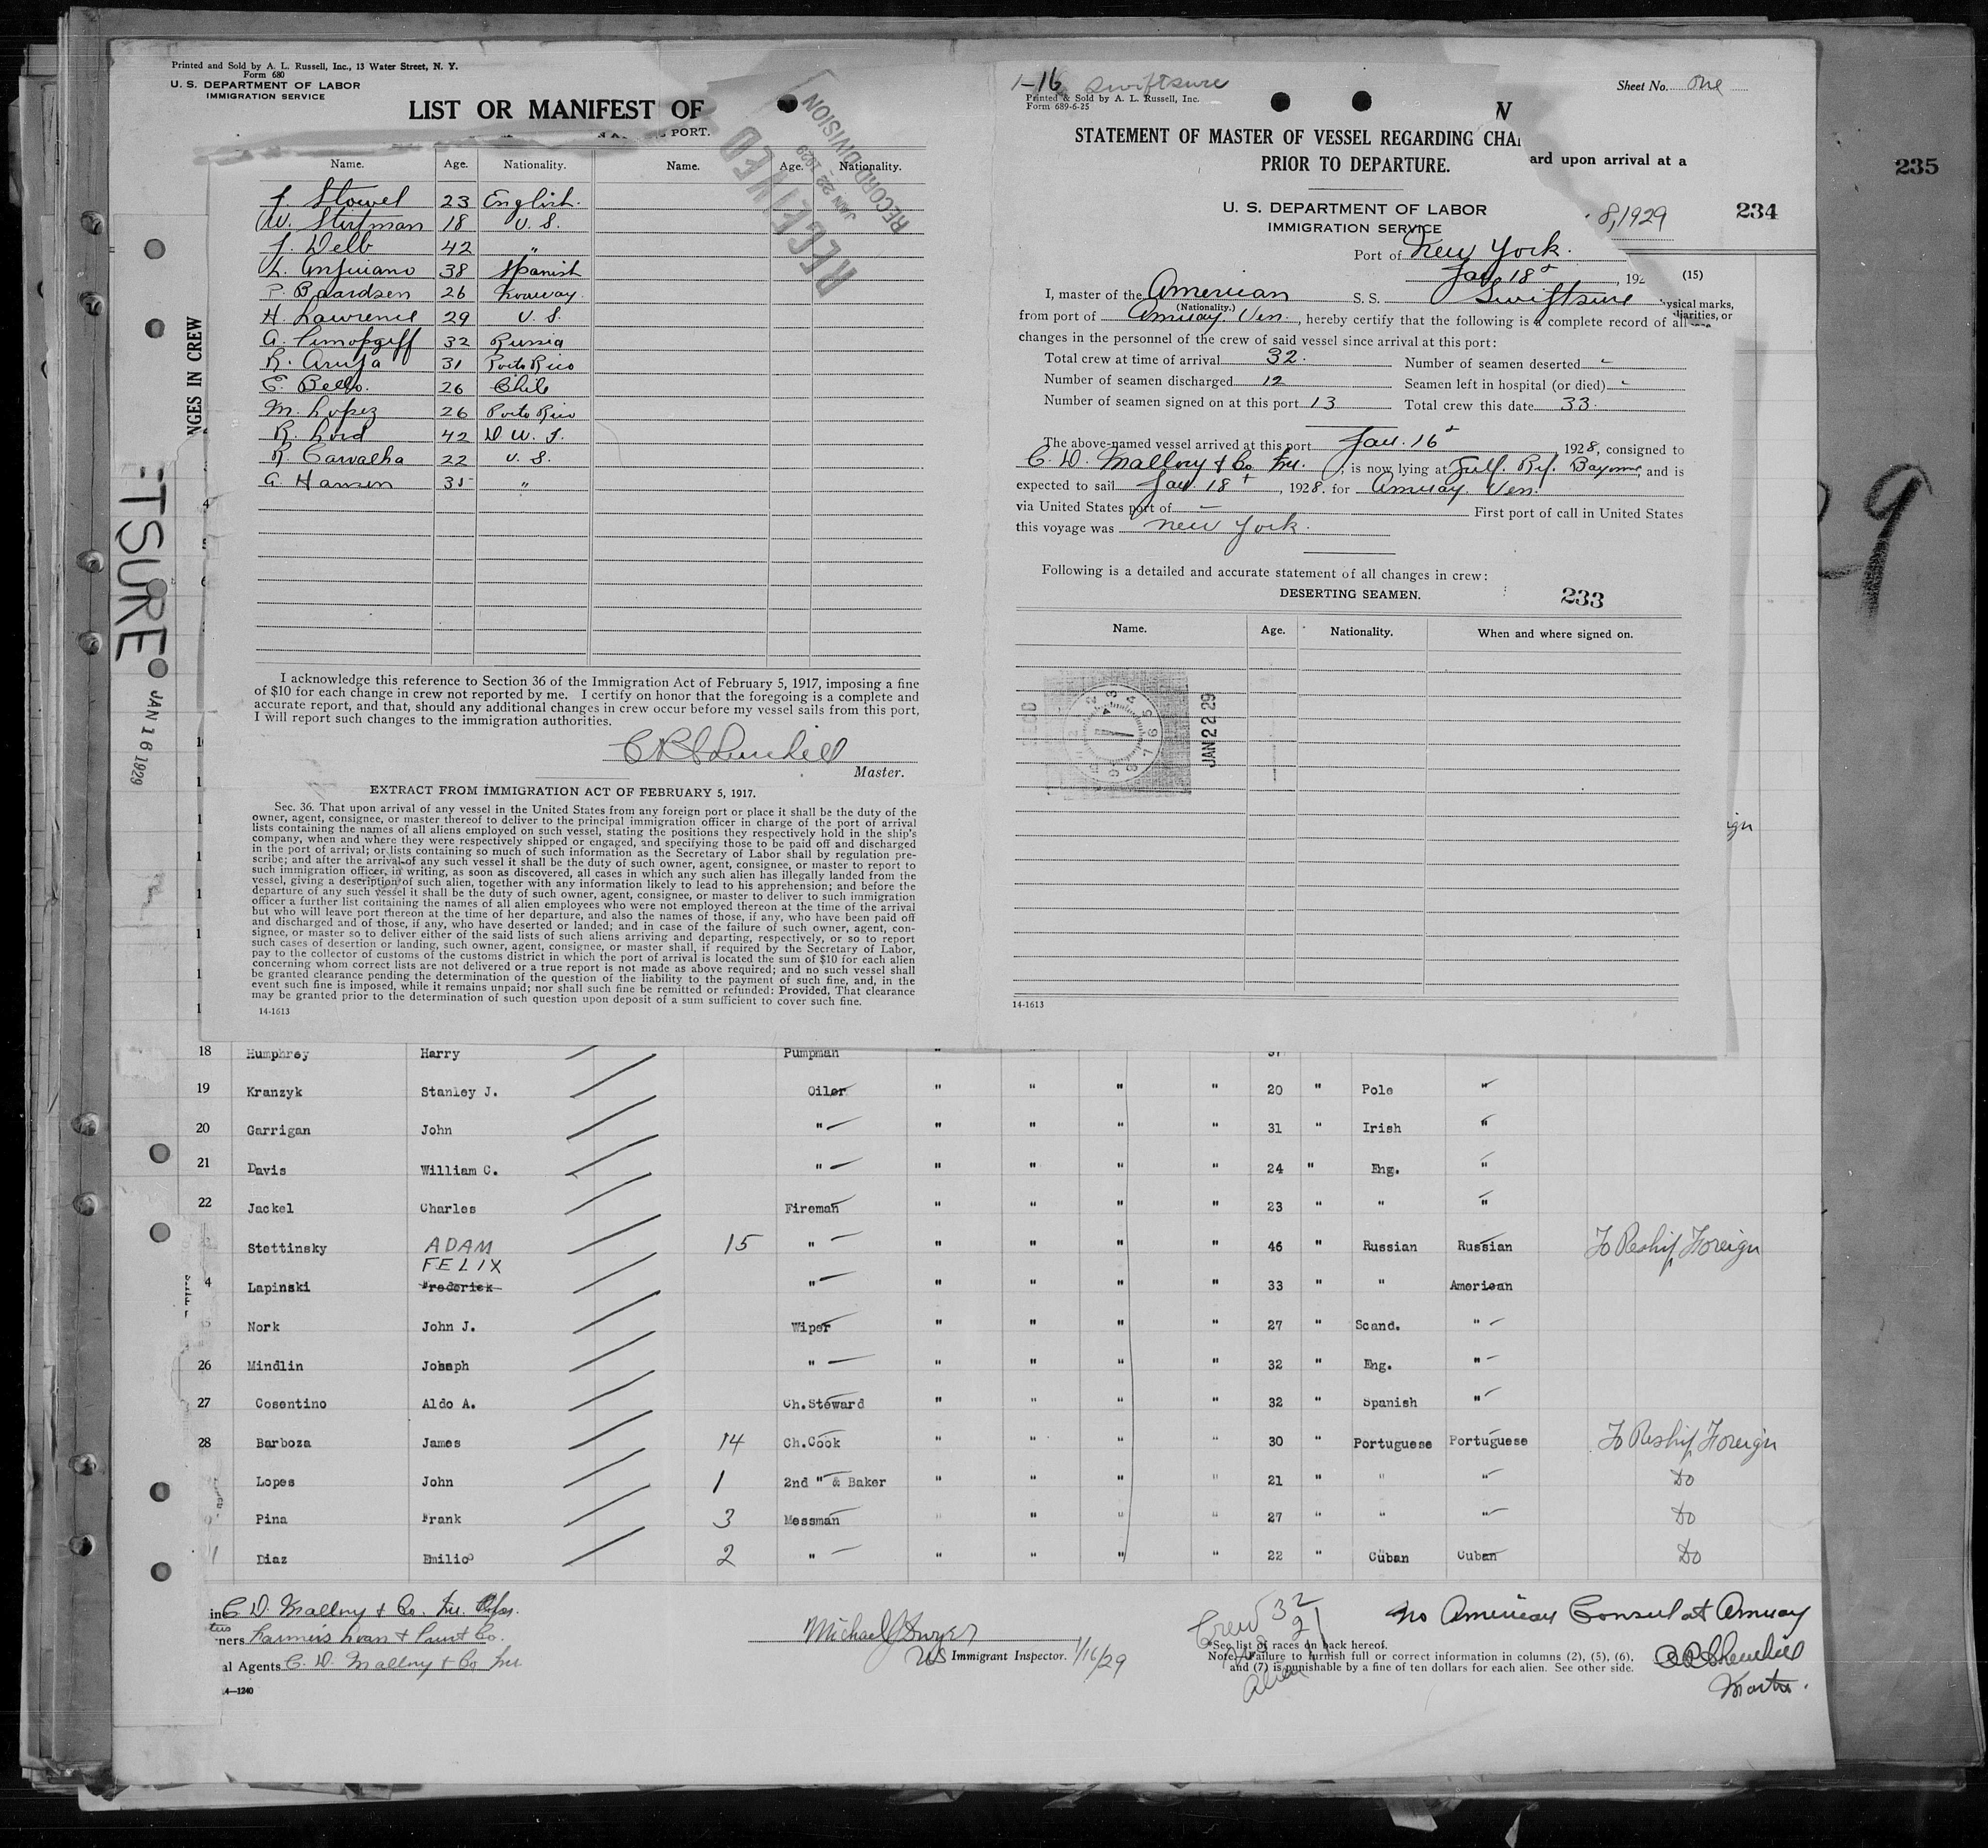 Printed and Sold by A. L. Russell, Inc., 13 Water Street, N. Y.
Form 680
U. S. DEPARTMENT OF LABOR
IMMIGRATION SERVICE
LIST OR MANIFEST OF
PORT.
RECEIVED
JAN 22 1929
RECORD DIVISION
Name. Age. Nationality. Name. Age. Nationality.
J. Stowel 23 English.
W. 18 U. S.
J. Delb 42 "
L. 38 Spanish
P. Baardsen 26 Norway
H. Lawrence 29 U. S.
A. 32 Russia
R. 31 Porto Rico
E. Bello. 26 Chile
M. Lopez 26 Porto Rico
R. Lord 42 D W. I.
R. Carvalha 22 U. S.
A. Hansen 35 "
I acknowledge this reference to Section 36 of the Immigration Act of February 5, 1917, imposing a fine
of $10 for each change in crew not reported by me. I certify on honor that the foregoing is a complete and
accurate report, and that, should any additional changes in crew occur before my vessel sails from this port,
I will report such changes to the immigration authorities.
Master.
EXTRACT FROM IMMIGRATION ACT OF FEBRUARY 5, 1917.
Sec. 36. That upon arrival of any vessel in the United States from any foreign port or place it shall be the duty of the
owner, agent, consignee, or master thereof to deliver to the principal immigration officer in charge of the port of arrival
lists containing the names of all aliens employed on such vessel, stating the positions they respectively hold in the ship's
company, when and where they were respectively shipped or engaged, and specifying those to be paid off and discharged
in the port of arrival; or lists containing so much of such information as the Secretary of Labor shall by regulation pre-
scribe; and after the arrival of any such vessel it shall be the duty of such owner, agent, consignee, or master to report to
such immigration officer, in writing, as soon as discovered, all cases in which any such alien has illegally landed from the
vessel, giving a description of such alien, together with any information likely to lead to his apprehension; and before the
departure of any such vessel it shall be the duty of such owner, agent, consignee, or master to deliver to such immigration
officer a further list containing the names of all alien employees who were not employed thereon at the time of the arrival
but who will leave port thereon at the time of her departure, and also the names of those, if any, who have been paid off
and discharged and of those, if any, who have deserted or landed; and in case of the failure of such owner, agent, con-
signee, or master so to deliver either of the said lists of such aliens arriving and departing, respectively, or so to report
such cases of desertion or landing, such owner, agent, consignee, or master shall, if required by the Secretary of Labor,
pay to the collector of customs of the customs district in which the port of arrival is located the sum of $10 for each alien
concerning whom correct lists are not delivered or a true report is not made as above required; and no such vessel shall
be granted clearance pending the determination of the question of the liability to the payment of such fine, and, in the
event such fine is imposed, while it remains unpaid; nor shall such fine be remitted or refunded: Provided, That clearance
may be granted prior to the determination of such question upon deposit of a sum sufficient to cover such fine.
14-1613
NGES IN CREW
TSURE
JAN 16 1929
1-16 Swiftsure
Printed & Sold by A. L. Russell, Inc.
Form 689-6-25
Sheet No. One
STATEMENT OF MASTER OF VESSEL REGARDING CHA
PRIOR TO DEPARTURE.
ard upon arrival at a
235
U. S. DEPARTMENT OF LABOR
IMMIGRATION SERVICE
8, 1929
234
Port of New York.
Jan 18, 192
(15)
ysical marks,
liarities, or
I, master of the American S. S. Swiftsure
(Nationality.)
from port of Amuay. Ven., hereby certify that the following is a complete record of all
changes in the personnel of the crew of said vessel since arrival at this port:
Total crew at time of arrival 32. Number of seamen deserted -
Number of seamen discharged 12 Seamen left in hospital (or died) -
Number of seamen signed on at this port 13 Total crew this date 33.
The above-named vessel arrived at this port Jan. 16, 1928, consigned to
C. D. Mallory & Co Inc., is now lying at Gulf. Ref. Bayonne, and is
expected to sail Jan. 18, 1928. for Amuay. Ven.
via United States port of - First port of call in United States
this voyage was New York.
Following is a detailed and accurate statement of all changes in crew:
DESERTING SEAMEN. 233
Name. Age. Nationality. When and where signed on.
JAN 22 29
14-1613
ign
9
18 Humphrey Harry Pumpman "
19 Kranzyk Stanley J. Oiler " " " " 20 " Pole "
20 Garrigan John " " " " " 31 " Irish "
21 Davis William C. " " " " " 24 " Eng. "
22 Jackel Charles Fireman " " " " 23 " " "
Stettinsky ADAM 15 " " " " " 46 " Russian Russian To Reship Foreign
FELIX
4 Lapinski Frederick " " " " " 33 " " American
Nork John J. Wiper " " " " 27 " Scand. "
26 Mindlin Joseph " " " " " 32 " Eng. "
27 Cosentino Aldo A. Ch.Steward " " " " 32 " Spanish "
28 Barboza James 14 Ch.Cook " " " " 30 " Portuguese Portuguese To Reship Foreign
Lopes John 1 2nd " & Baker " " " " 21 " " " Do
Pina Frank 3 Messman " " " " 27 " " " Do
Diaz Emilio 2 " " " " " 22 " Cuban Cuban Do
ine C. D. Mallory & Co. Inc.
ners Farmers Loan & Trust Co.
al Agents C. D. Mallory & Co Inc
4-1240
Michael J Dwyer
US Immigrant Inspector. 1/16/29
Crew 32
21
Alien
*See list of races on back hereof.
Note.—Failure to furnish full or correct information in columns (2), (5), (6),
and (7) is punishable by a fine of ten dollars for each alien. See other side.
No American Consul at Amuay
Master.